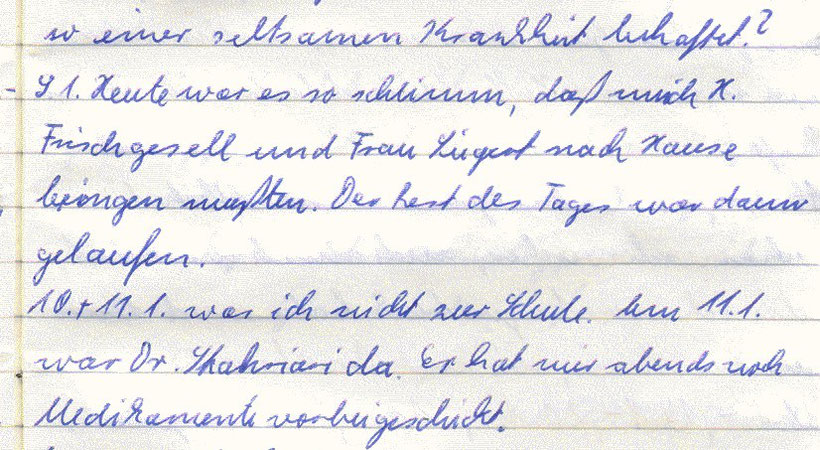 so einer seltsamen Krankheit behaftet?
9 1. Heute war es so schlimm, daß mich H.
Frischgesell und Frau Liegert nach Hause
bringen mußten. Der Rest des Tages war dann
gelaufen.
10.+11.1. war ich nicht zur Schule. Am 11.1.
war Dr. Shahriari da. Er hat mir abends noch
Medikamente vorbeigeschickt.